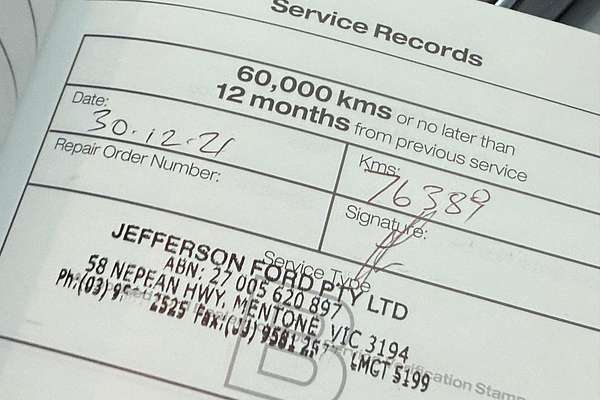 Service Records
60,000 kms or no later than
12 months from previous service
Date:
30.12.21
Kms:
76389
Repair Order Number:
Signature:
Service Type
JEFFERSON FORD PTY LTD
ABN: 27 005 620 897
58 NEPEAN HWY, MENTONE VIC 3194
Ph:(03) 2525 Fax:(03) 9581 LMCT 5199
B
Stamp